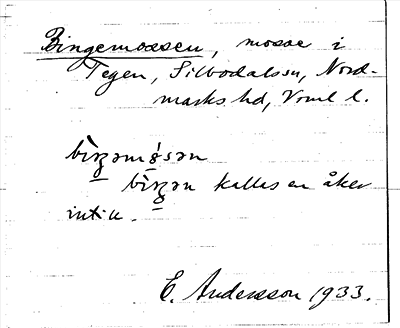 Bingemossen, mosse i
Tegen, Silbodalssn, Nord-
marks hd, Vrml l.
bìŋəmǫ́sən
bìŋən kallas en åker
intill.
E. Andersson 1933.